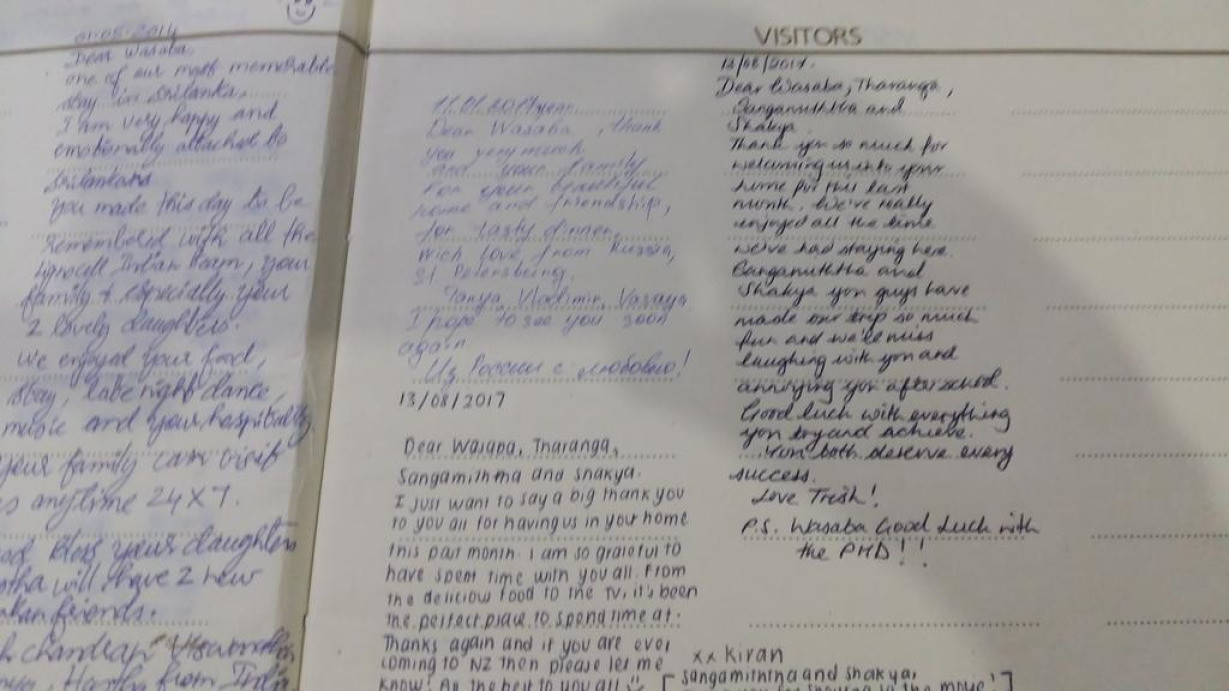 01-05-2014
Dear Wasaba,
one of our most memorable
stay in Srilanka.
I am very happy and
emotionally attached to
Srilankans
you made this day to be
Remembered with all the
Indian Team, your
family & especially your
2 lovely daughters.
we enjoyed your food,
stay, late night dance,
music and your hospitality
your family can visit
anytime 24 x 7.
Bless your daughters
will have 2 new
friends.
from India
VISITORS
11.01.2017 year
Dear Wasaba, thank
you very much
and your family
for your beautiful
home and friendship,
for tasty dinner.
With love from Russia,
St Petersburg.
Tanya, Vladimir, Vasaya
I hope to see you soon
again
Из России с любовью!
13/08/2017
Dear Wasaba, Tharanga,
Sangamithma and Shakya.
I just want to say a big thank you
to you all for having us in your home
this past month. I am so grateful to
have spent time with you all. From
the delicious food to the TV, it's been
the perfect place to spend time at.
Thanks again and if you are ever
coming to NZ then please let me
know! All the best to you all
xx Kiran
Sangamithma and Shakya,
13/08/2017.
Dear Wasaba, Tharanga,
and
Shakya
Thank you so much for
welcoming us into your
home for this last
month. We've really
enjoyed all the time
we've had staying here.
and
Shakya you guys have
made our trip so much
fun and we'll miss
laughing with you and
annoying you after school.
Good luck with everything
you try and achieve.
You both deserve every
success.
Love Trish!
P.S. Wasaba Good Luck with
the PHD!!